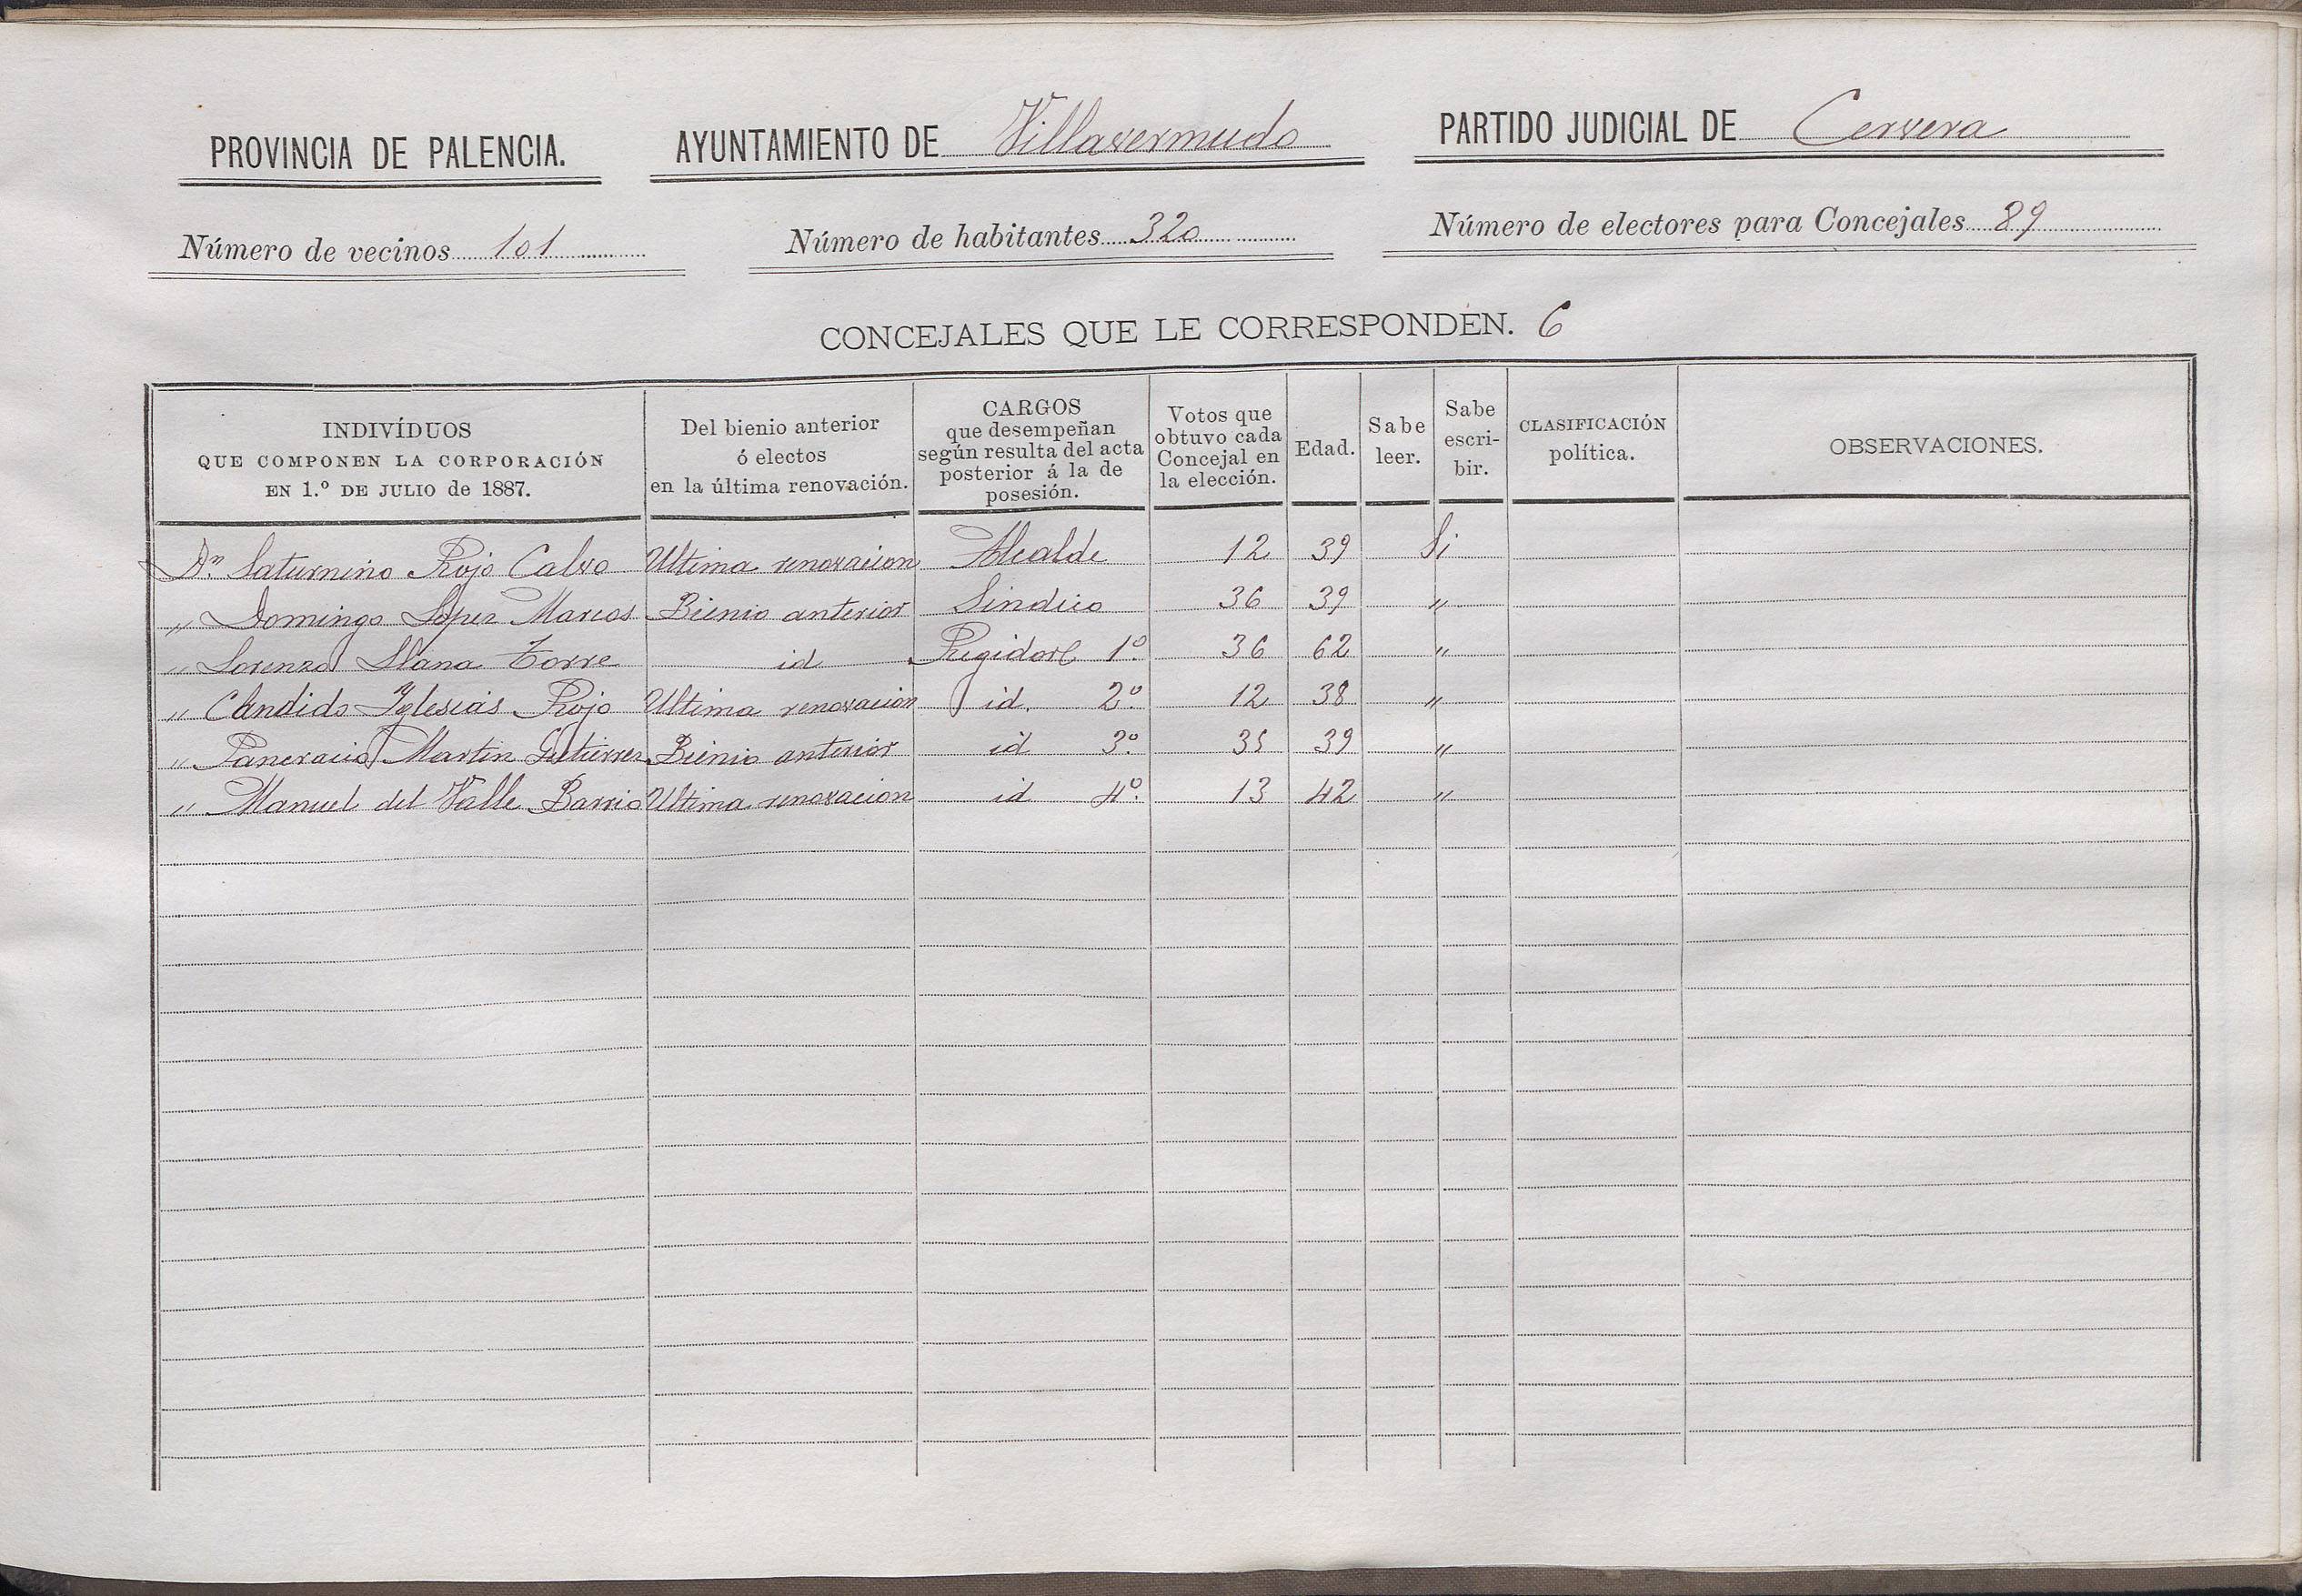 PROVINCIA DE PALENCIA. AYUNTAMIENTO DE Villavermudo PARTIDO JUDICIAL DE Cervera
Número de vecinos 101 Número de habitantes 320 Número de electores para Concejales 89
CONCEJALES QUE LE CORRESPONDEN. 6
INDIVÍDUOS
QUE COMPONEN LA CORPORACIÓN
EN 1.º DE JULIO de 1887.
Del bienio anterior
ó electos
en la última renovación.
CARGOS
que desempeñan
según resulta del acta
posterior á la de
posesión.
Votos que
obtuvo cada
Concejal en
la elección.
Edad.
Sabe
leer.
Sabe
escri-
bir.
CLASIFICACIÓN
política.
OBSERVACIONES.
Dn. Saturnino Rojo Calvo Ultima renovacion Alcalde 12 39 Si
" Domingo Lopez Marcos Bienio anterior Sindico 36 39 "
" Lorenzo Llana Torre id Regidor 1º. 36 62 "
" Candido Yglesias Rojo Ultima renovacion id. 2º. 12 38 "
" Pancracio Martin Gutierrez Bienio anterior id 3º. 35 39 "
" Manuel del Valle Barrio Ultima renovacion id 4º. 13 42 "